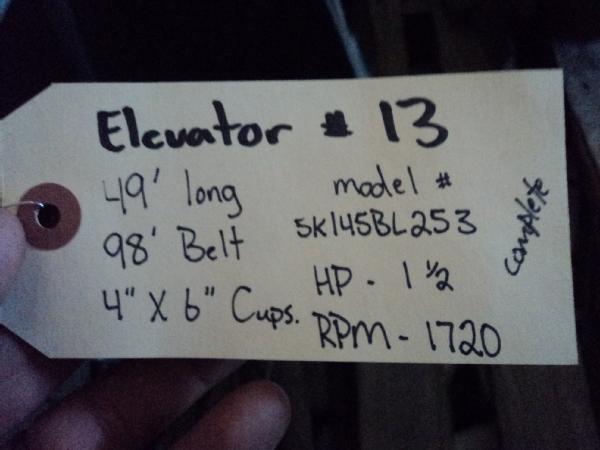 Elevator # 13
49' long
98' Belt
4" X 6" Cups.
model #
5K145BL253
HP - 1 1/2
RPM - 1720
complete